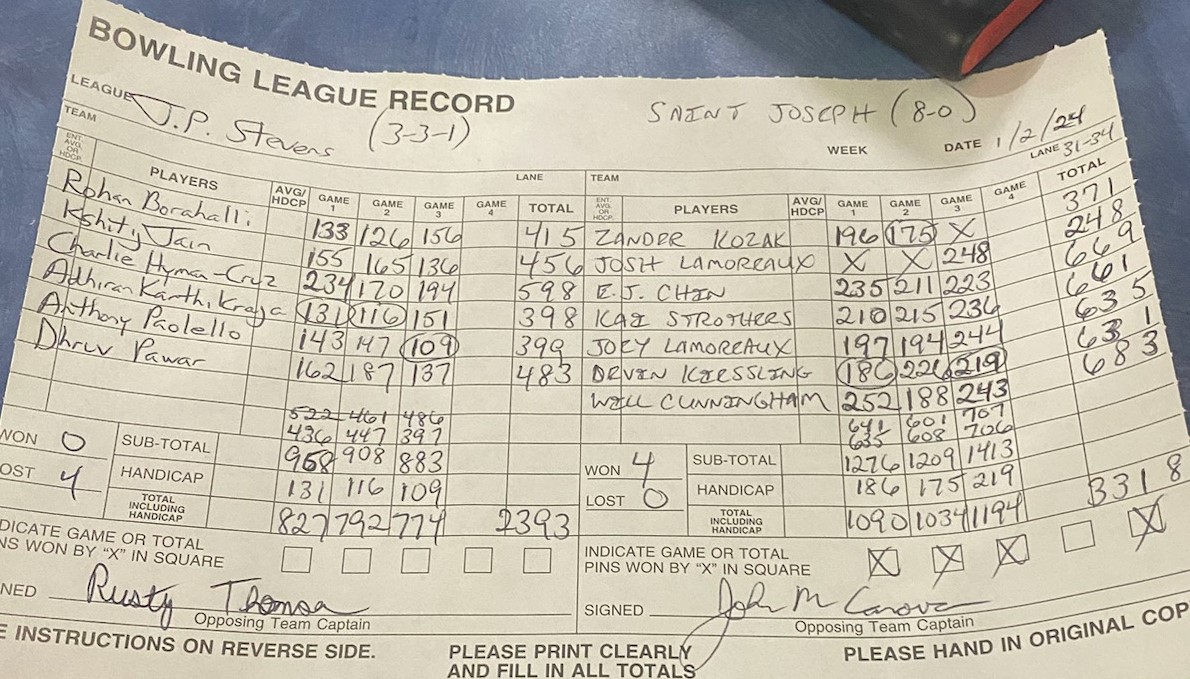 BOWLING LEAGUE RECORD
LEAGUE J.P. Stevens (3-3-1) SAINT JOSEPH (8-0)
TEAM WEEK DATE 1/2/24
LANE TEAM LANE 31-34
ENT. AVG. OR HDCP. PLAYERS AVG/HDCP GAME 1 GAME 2 GAME 3 GAME 4 TOTAL ENT. AVG. OR HDCP. PLAYERS AVG/HDCP GAME 1 GAME 2 GAME 3 GAME 4 TOTAL
Rohan Borahalli 133 126 156 415 ZANDER KOZAK 196 175 X 371
Kshitij Jain 155 165 136 456 JOSH LAMOREAUX X X 248 248
Charlie Hyman-Cruz 234 170 194 598 E.J. CHIN 235 211 223 669
Adhiran Karthikraja 131 116 151 398 KAI STROTHERS 210 215 236 661
Anthony Paolello 143 147 109 399 JOEY LAMOREAUX 197 194 244 635
Dhruv Pawar 162 187 137 483 DEVIN KIESSLING 186 226 219 631
WILL CUNNINGHAM 252 188 243 683
522 461 486 641 601 707
436 447 397 635 608 706
WON 0 SUB-TOTAL 958 908 883 WON 4 SUB-TOTAL 1276 1209 1413
OST 4 HANDICAP 131 116 109 LOST 0 HANDICAP 186 175 219
TOTAL INCLUDING HANDICAP 827 792 774 2393 TOTAL INCLUDING HANDICAP 1090 1034 1194 3318
DICATE GAME OR TOTAL INDICATE GAME OR TOTAL
NS WON BY "X" IN SQUARE PINS WON BY "X" IN SQUARE X X X X
NED Rusty Thomsa SIGNED John M
Opposing Team Captain Opposing Team Captain
E INSTRUCTIONS ON REVERSE SIDE. PLEASE PRINT CLEARLY AND FILL IN ALL TOTALS PLEASE HAND IN ORIGINAL COP